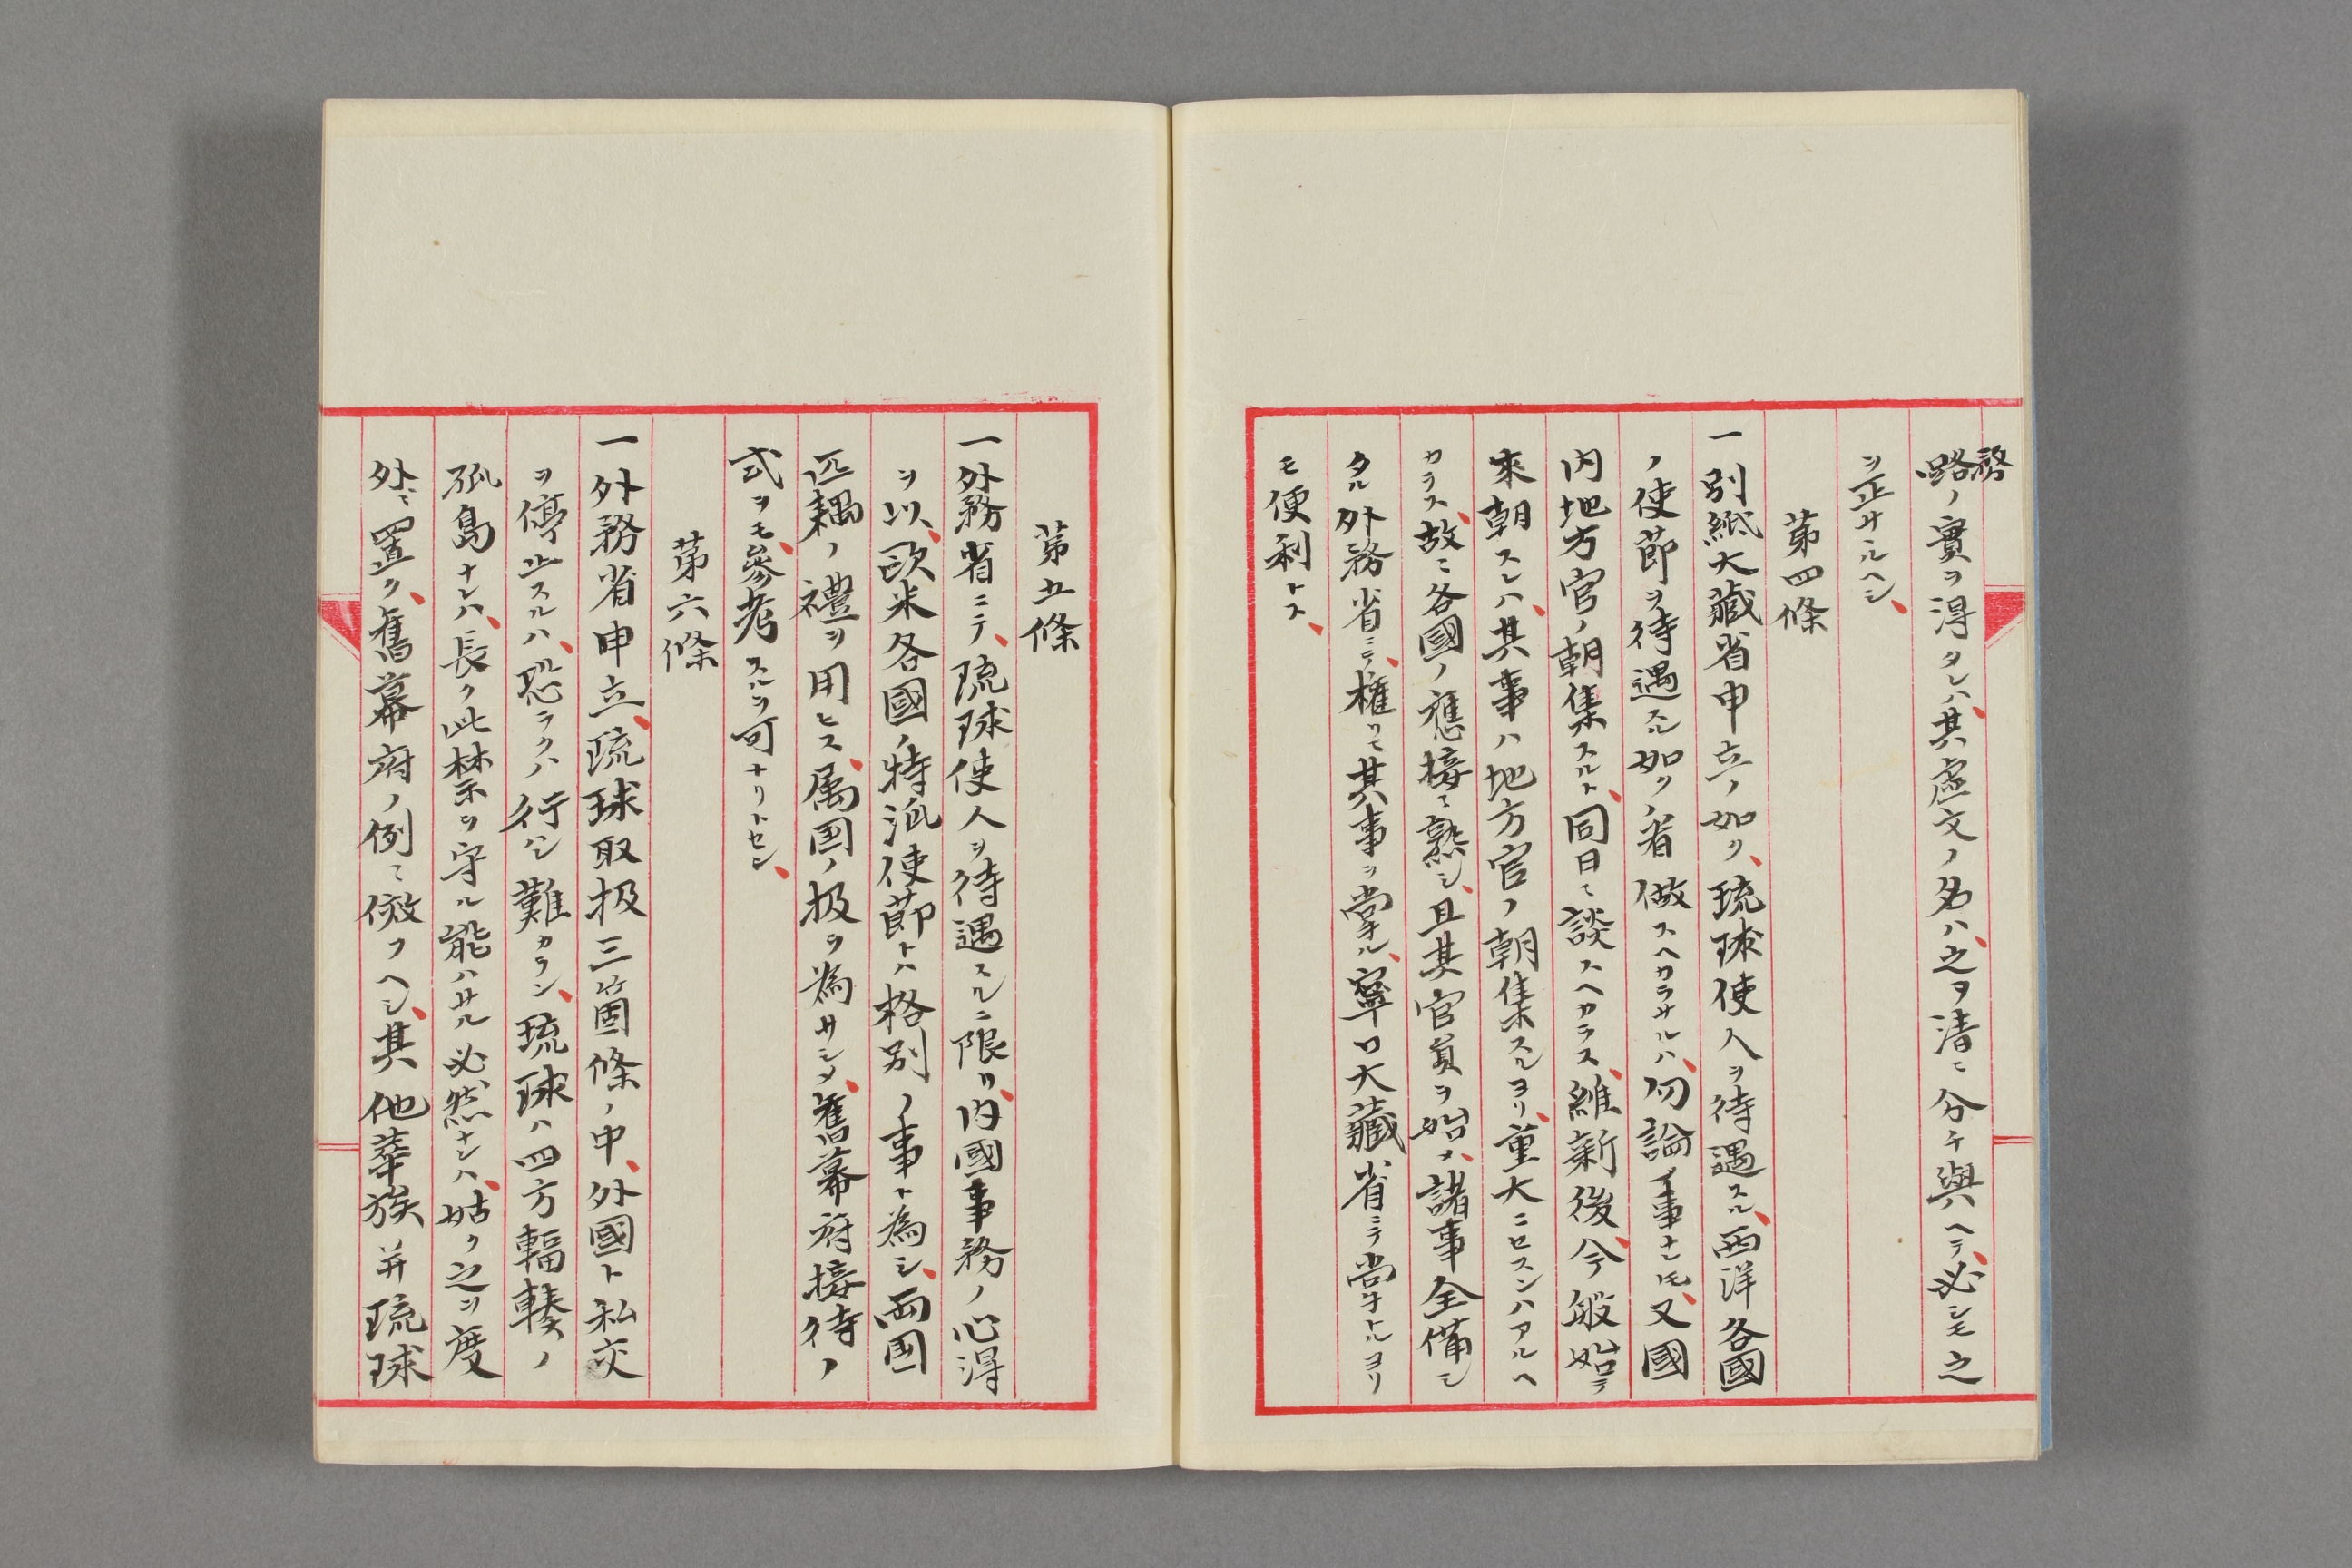 務
路ノ實ヲ得タレハ、其虚文ノ名ハ、之ヲ清ニ分チ與ヘテ、必シモ之
ヲ正サヽルヘシ、
第四條
一別紙大藏省申立ノ如ク、琉球使人ヲ待遇スル、西洋各國
ノ使節ヲ待遇スル如ク、省做スヘカラサルハ、勿論ノ事ナレ𪜈、又國
内地方官ノ朝集スルト、同日ニ談スヘカラス、維新後、今般始テ
來朝スレハ、其事ハ地方官ノ朝集スルヨリ、重大ニセスンハアルヘ
カラス、故ニ各國ノ應接ニ熟シ、且其官員ヲ始メ、諸事全備シ
タル外務省ニテ、權リニ其事ヲ掌ル、寧ロ大藏省ニテ掌トルヨリ
モ便利トス、
第五條
一外務省ニテ、琉球使人ヲ待遇スルニ限リ、内國事務ノ心得
ヲ以、歐米各國ノ特派使節トハ格別ノ事ト為シ、両国
匹耦ノ禮ヲ用ヒス、属国ノ扱ヲ為サシメ、舊幕府接待ノ
式ヲモ、參考スルヲ可ナリトセン、
第六條
一外務省申立、琉球取扱三箇條ノ中、外國ト私交
ヲ停止スルハ、恐ラクハ行ハレ難カラン、琉球ハ四方輻輳ノ
孤島ナレハ、長ク此禁ヲ守ル能ハサル必然ナレハ、姑ク之ヲ度
外ニ置ク、舊幕府ノ例ニ倣フヘシ、其他華族并琉球